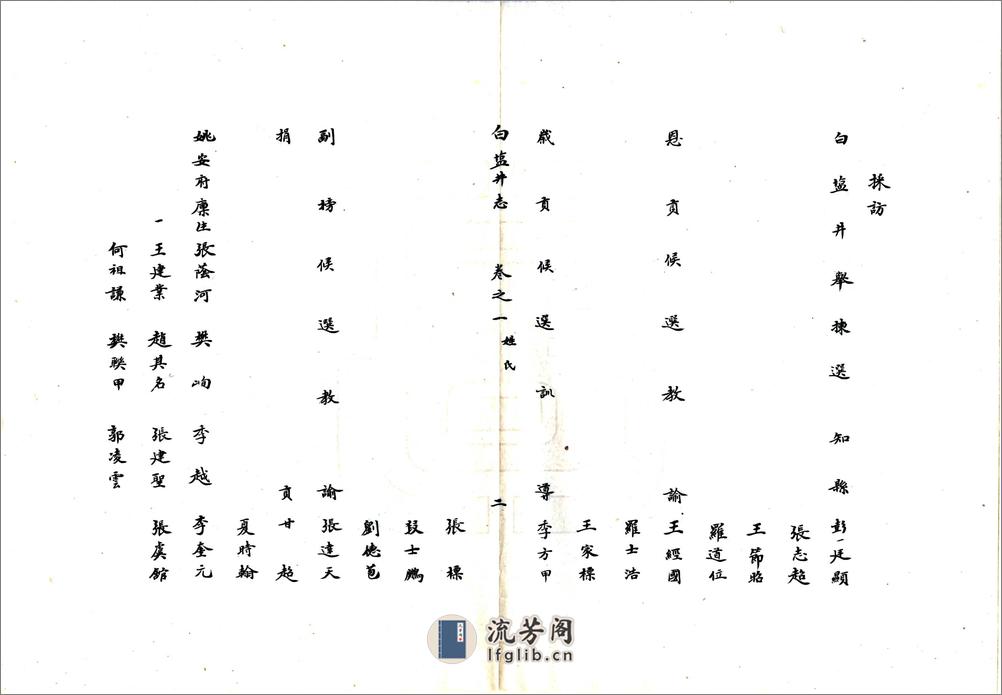 採訪
白塩井舉揀選知縣彭廷顯
張志超
王節昭
羅道位
恩貢候選教諭王經國
羅士浩
王家標
歲貢候選訓導李方甲
白塩井志 卷之一 姓氏 二
張標
士鵬
劉德芑
副榜候選教諭張達天
捐貢甘超
夏時翰
姚安府廪生張蔭河 樊峋 李越 李奎元
王建業 趙其名 張建聖 張虞館
何祖謙 樊聯甲 郭凌雲
流芳阁
lfglib.cn